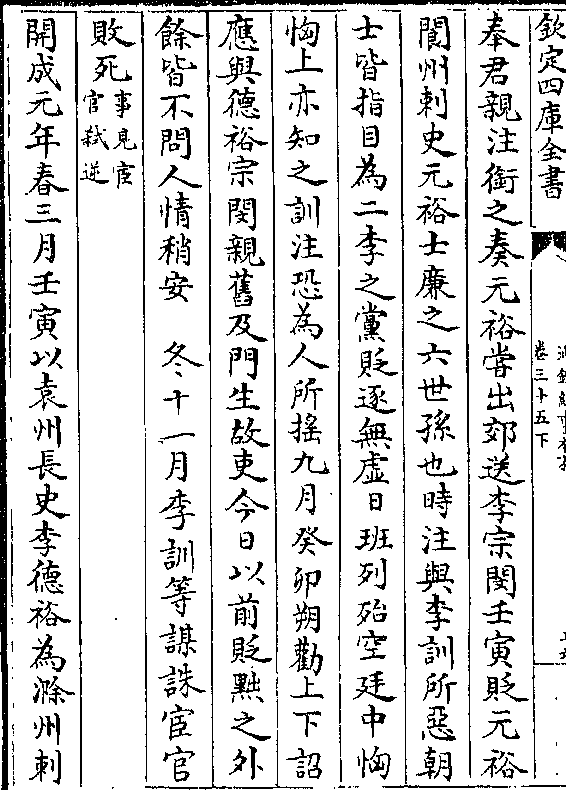 欽定四庫全書
卷三十五下
奉君親注銜之奏元裕嘗出郊送李宗閔壬寅貶元裕
閬州刺史元裕士廉之六世孫也時注與李訓所惡朝
士皆指目為二李之黨貶逐無虚日班列殆空廷中恟
恟上亦知之訓注恐為人所摇九月癸卯朔勸上下詔
應與德裕宗閔親舊及門生故吏今日以前貶黜之外
餘皆不問人情稍安　冬十一月李訓等謀誅宦官
敗死事見宦官弑逆
開成元年春三月壬寅以袁州長史李德裕為滁州刺